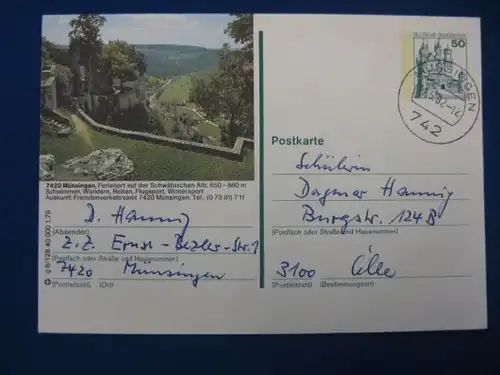 DEUTSCHE BUNDESPOST
50
MÜNSINGEN
742
Postkarte
7420 Münsingen, Ferienort auf der Schwäbischen Alb, 650 – 860 m
Schwimmen, Wandern, Reiten, Flugsport, Wintersport
Auskunft: Fremdenverkehrsamt 7420 Münsingen, Tel.: (0 73 81) 7 11
D. Hannig
(Absender)
z.Z. Ernst-Bezler-Str. 1
(Postfach oder Straße und Hausnummer)
7420 Münsingen
(Postleitzahl) (Ort)
g 8/128 40 000 1.79
Schülerin
Dagmar Hannig
Burgstr. 124B
(Postfach oder Straße und Hausnummer)
3100 Celle
(Postleitzahl) (Bestimmungsort)